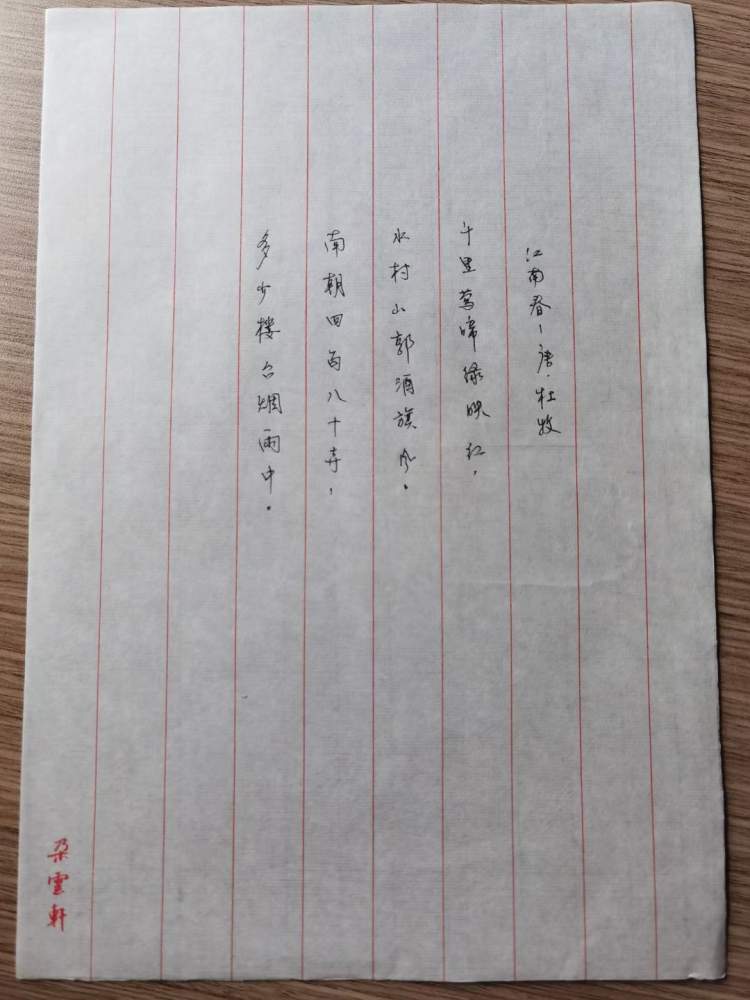 江南春－唐·杜牧
千里莺啼绿映红，
水村山郭酒旗风。
南朝四百八十寺，
多少楼台烟雨中。
朵雲軒